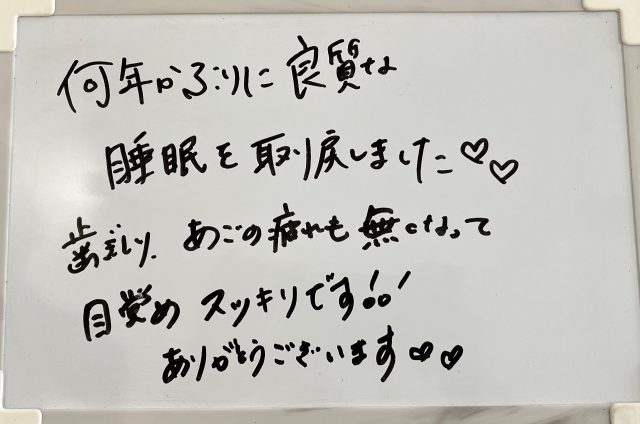 何年かぶりに良質な
睡眠を取り戻しました♡♡
歯ぎしり、あごの疲れも無くなって
目覚めスッキリです!!
ありがとうございます♡♡